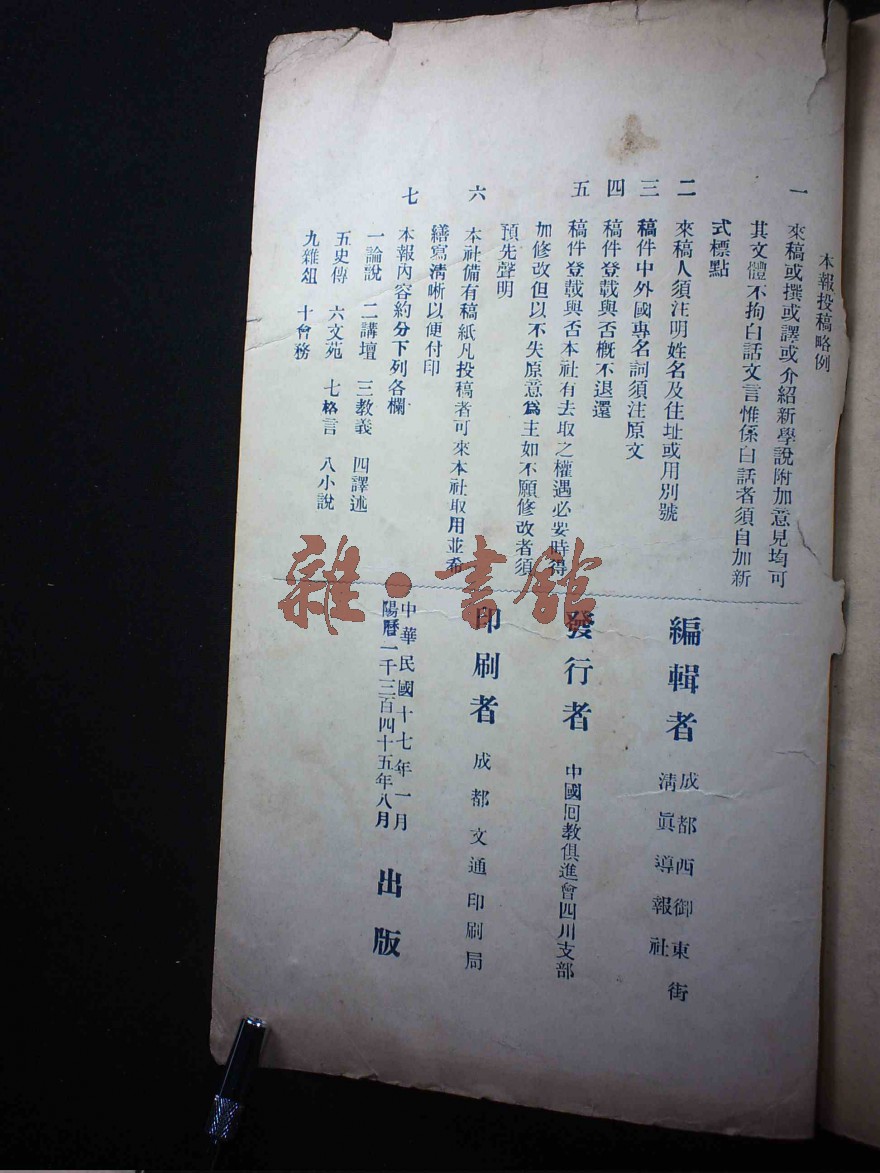 本報投稿略例
一 來稿或撰或譯或介紹新學說附加意見均可
其文體不拘白話文言惟係白話者須自加新
式標點
二 來稿人須注明姓名及住址或用別號
三 稿件中外國專名詞須注原文
四 稿件登載與否概不退還
五 稿件登載與否本社有去取之權遇必要時得
加修改但以不失原意爲主如不願修改者須
預先聲明
六 本社備有稿紙凡投稿者可來本社取用並希
繕寫清晰以便付印
七 本報內容約分下列各欄
一論說 二講壇 三教義 四譯述
五史傳 六文苑 七格言 八小說
九雜俎 十會務
編輯者 成都西御東街
清眞導報社
發行者 中國回教俱進會四川支部
印刷者 成都文通印刷局
中華民國十七年一月
陽曆一千三百四十五年八月
出版
雜·書館